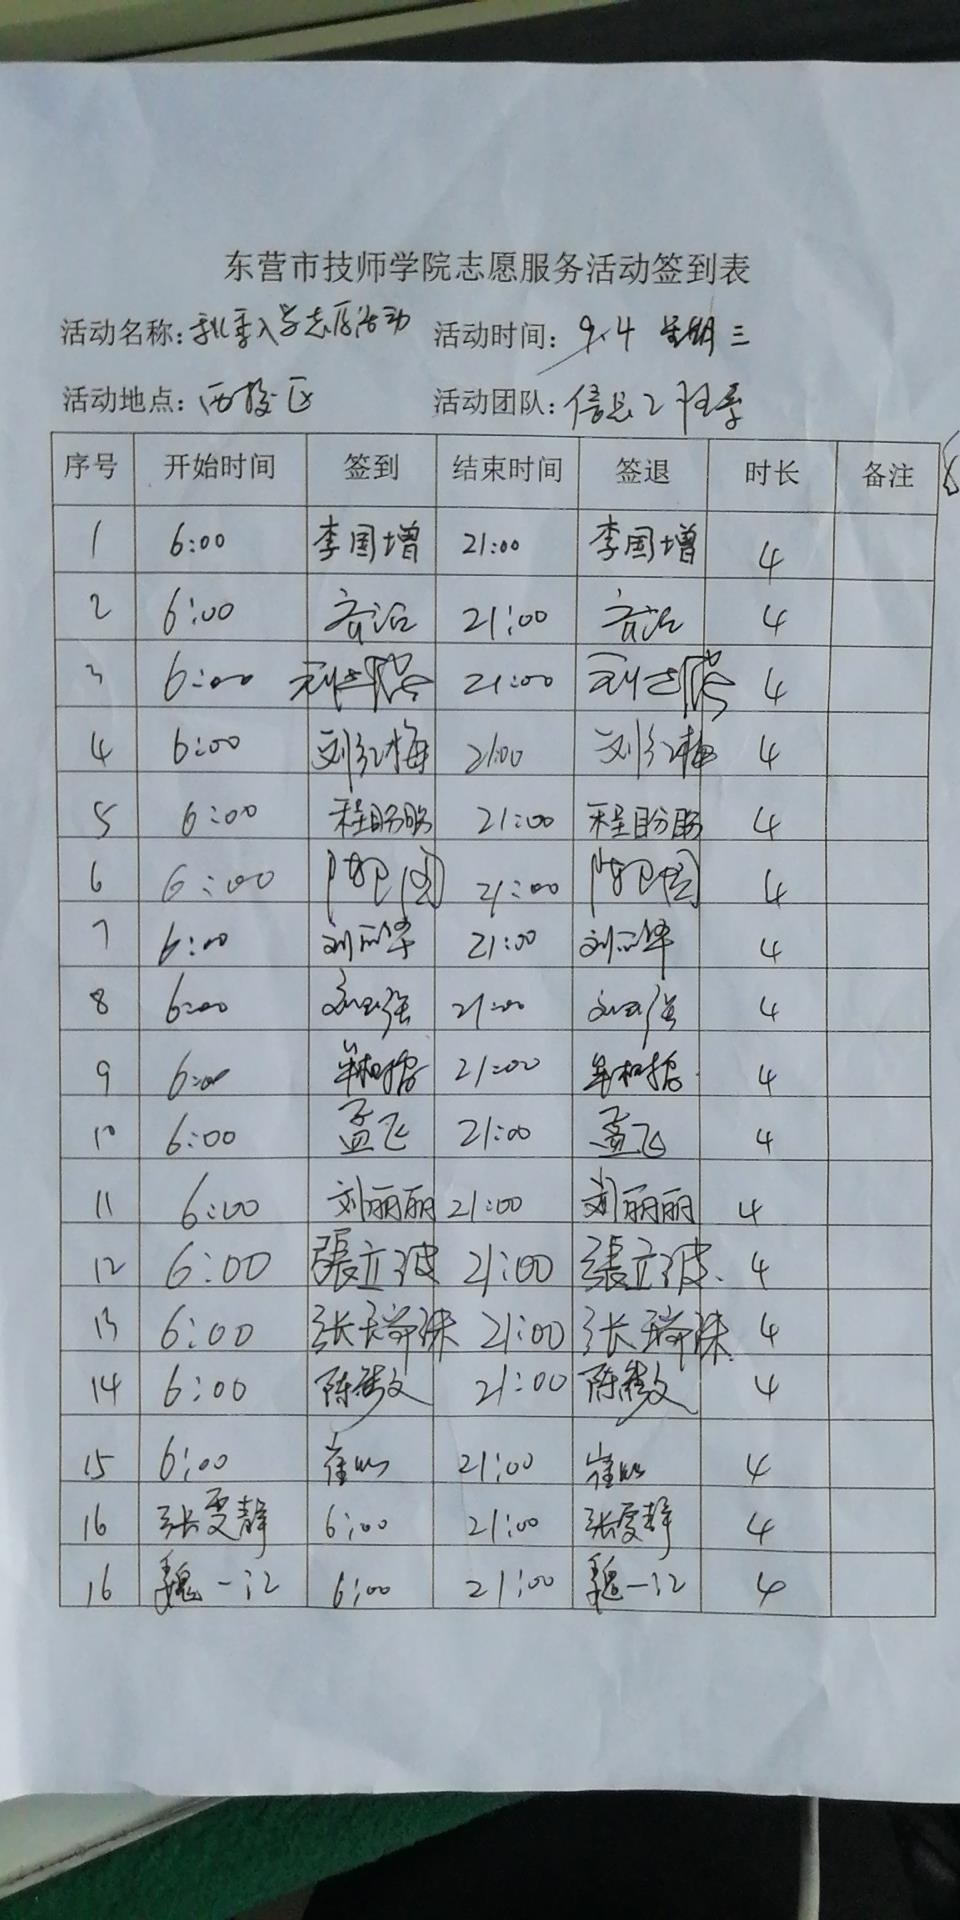 东营市技师学院志愿服务活动签到表
活动名称：秋季入学志愿活动 活动时间：9.4 星期三
活动地点：西校区 活动团队：信息2班
序号 开始时间 签到 结束时间 签退 时长 备注
1 6:00 李国增 21:00 李国增 4
2 6:00 21:00 4
3 6:00 21:00 4
4 6:00 刘红梅 21:00 刘红梅 4
5 6:00 程盼盼 21:00 程盼盼 4
6 6:00 21:00 4
7 6:00 21:00 4
8 6:00 21:00 4
9 6:00 21:00 4
10 6:00 孟飞 21:00 孟飞 4
11 6:00 刘丽丽 21:00 刘丽丽 4
12 6:00 張立波 21:00 張立波 4
13 6:00 张瑞珠 21:00 张瑞珠 4
14 6:00 21:00 4
15 6:00 21:00 4
16 张雯静 6:00 21:00 张雯静 4
16 魏一江 6:00 21:00 魏一江 4